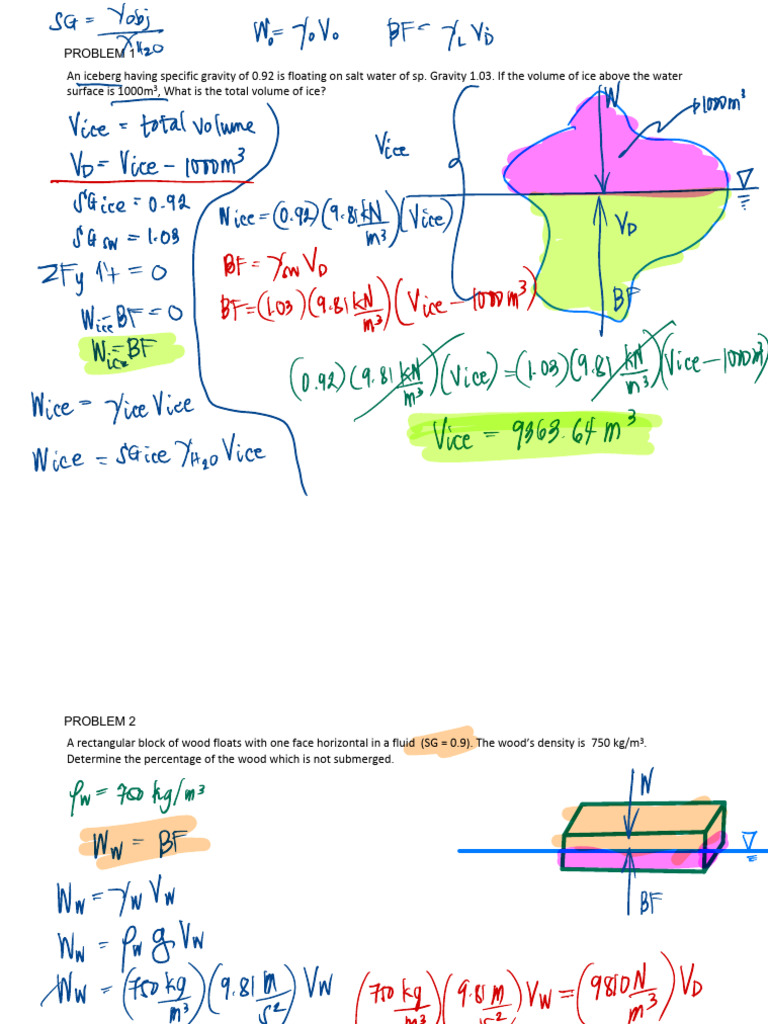 SG = γobj / γH2O
Wo = γo Vo
BF = γL VD
PROBLEM 1
An iceberg having specific gravity of 0.92 is floating on salt water of sp. Gravity 1.03. If the volume of ice above the water
surface is 1000m³, What is the total volume of ice?
Vice = total volume
VD = Vice - 1000m³
SGice = 0.92
SGsw = 1.03
ΣFy ↑+ = 0
Wice - BF = 0
Wice = BF
Wice = γice Vice
Wice = SGice γH2O Vice
Vice
W
1000m³
VD
BF
Wice = (0.92)(9.81 kN/m³)(Vice)
BF = γsw VD
BF = (1.03)(9.81 kN/m³)(Vice - 1000m³)
(0.92)(9.81 kN/m³)(Vice) = (1.03)(9.81 kN/m³)(Vice - 1000m³)
Vice = 9363.64 m³
PROBLEM 2
A rectangular block of wood floats with one face horizontal in a fluid (SG = 0.9). The wood's density is 750 kg/m³.
Determine the percentage of the wood which is not submerged.
ρw = 750 kg/m³
Ww = BF
W
BF
Ww = γw Vw
Ww = ρw g Vw
Ww = (750 kg/m³)(9.81 m/s²) Vw
(750 kg/m³)(9.81 m/s²) Vw = (9810 N/m³) VD